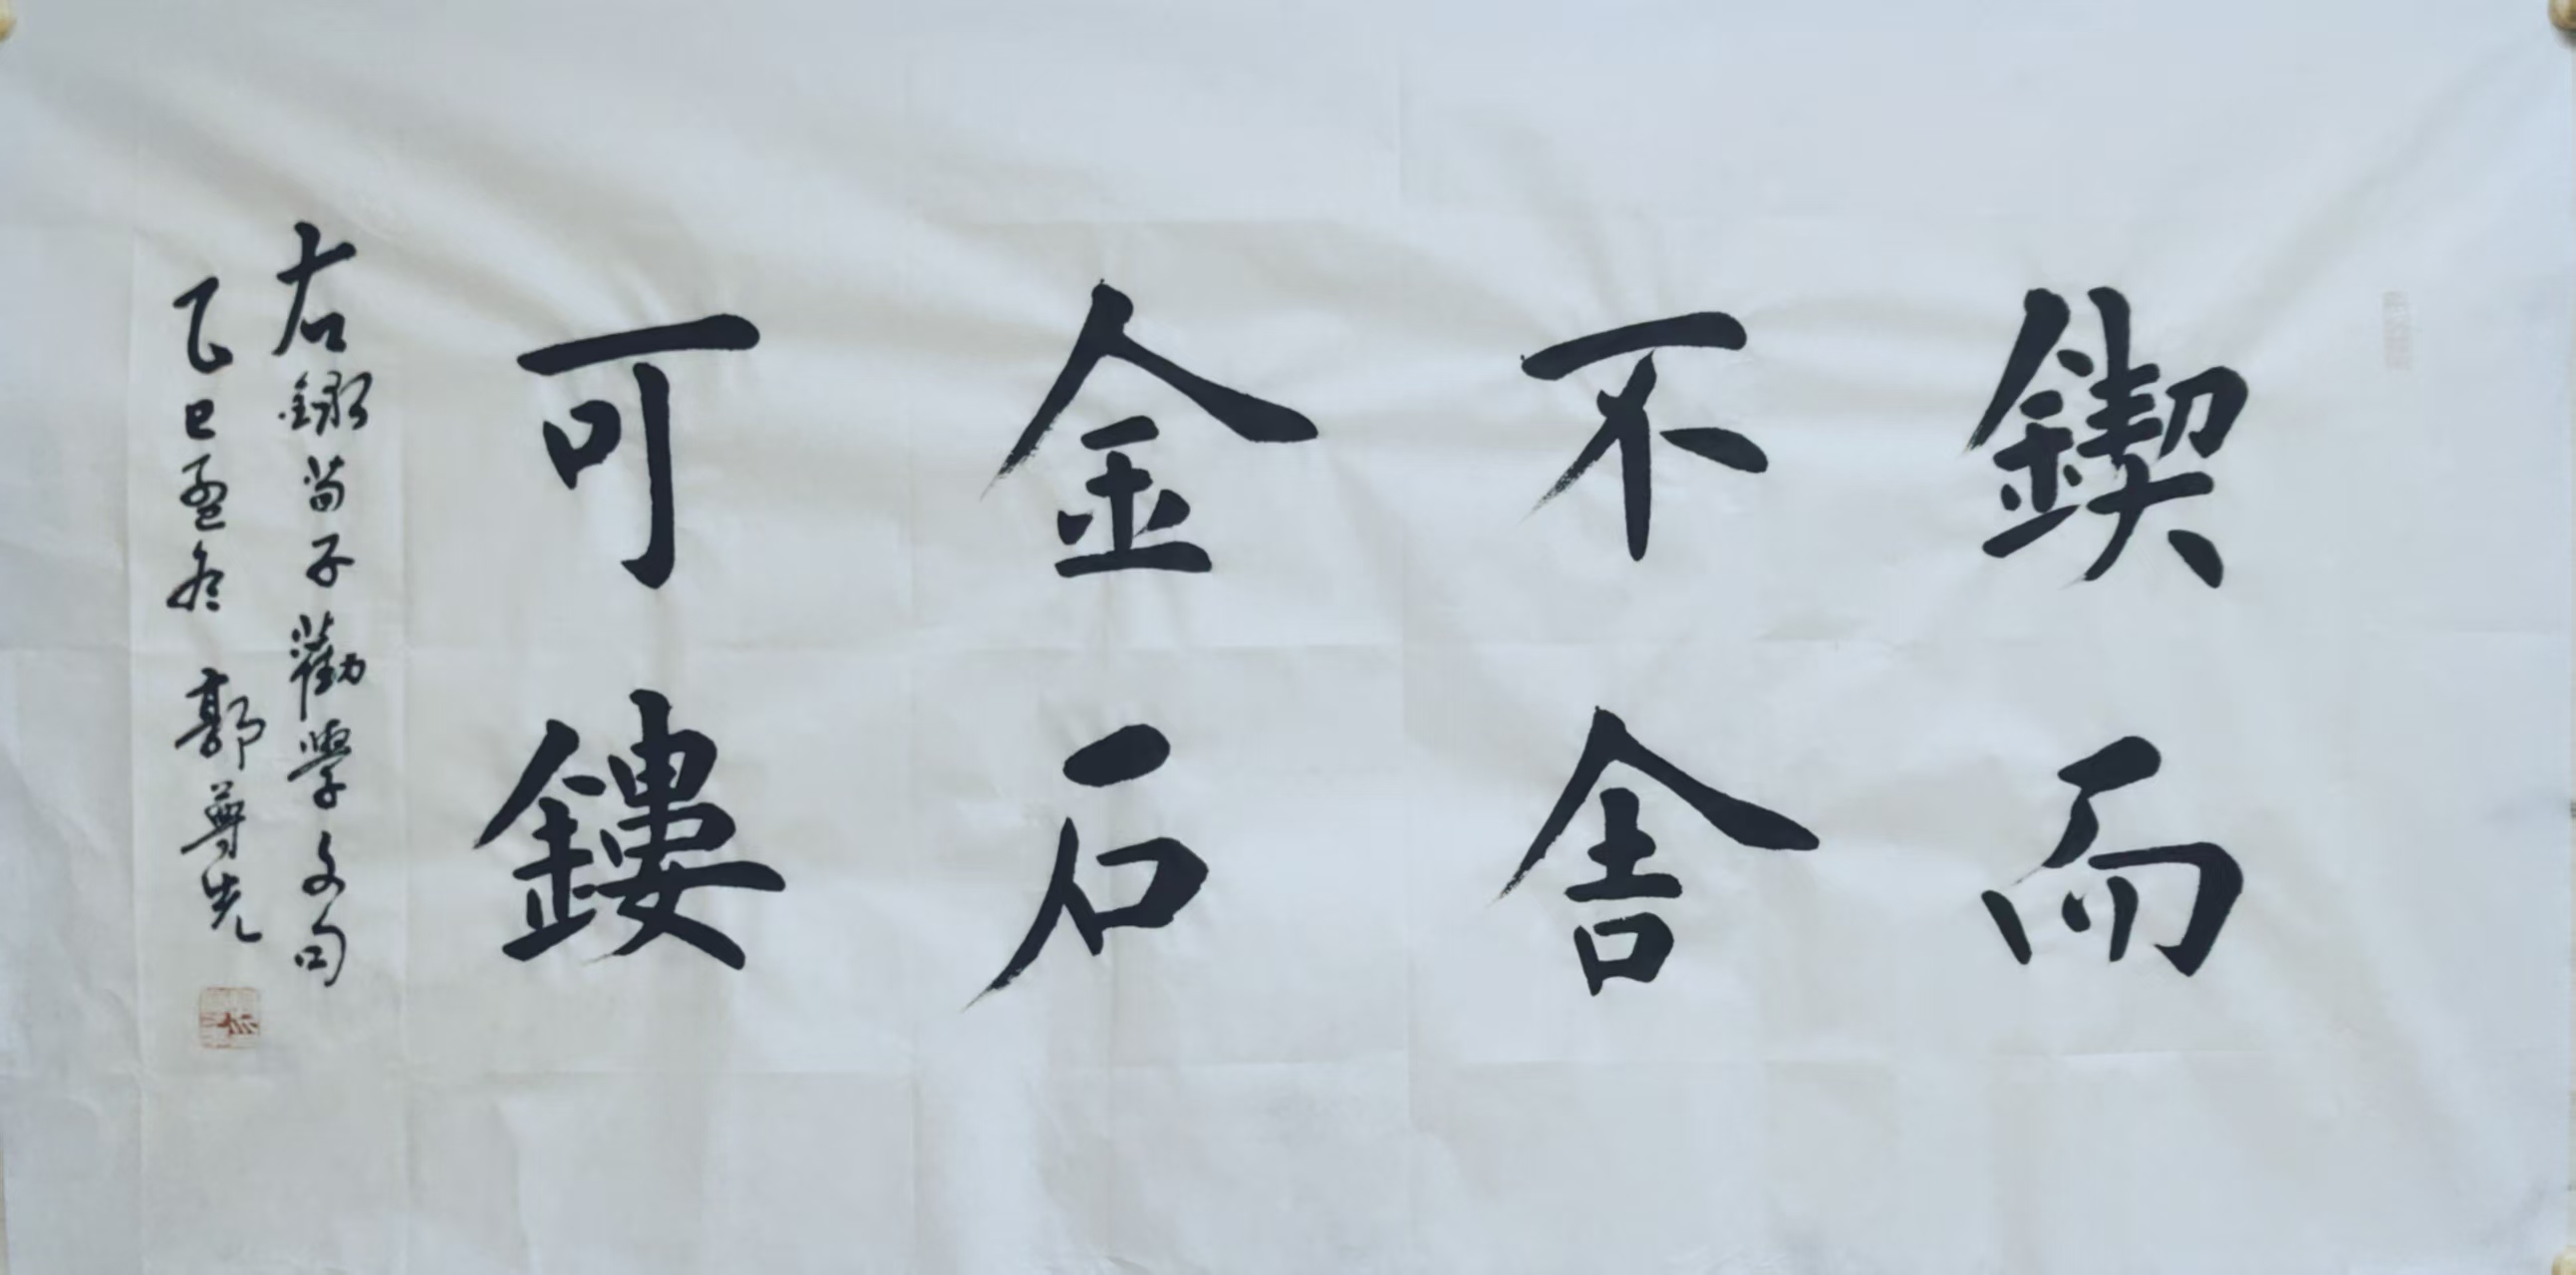 鍥而
不舍
金石
可鏤
右錄荀子勸學文句
乙巳孟冬 郭尊先